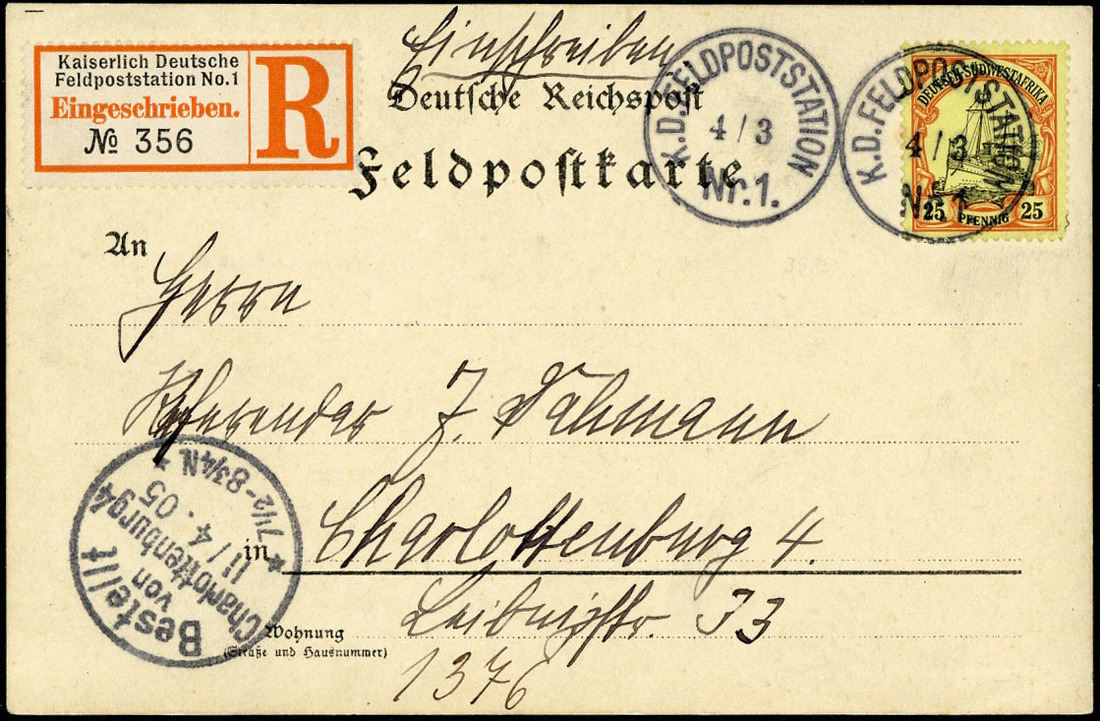 Kaiserlich Deutsche
Feldpoststation No.1
Eingeschrieben.
№ 356
R
Einschreiben
Deutsche Reichspost
Feldpostkarte
K.D.FELDPOSTSTATION
4/3
Nr.1.
K.D.FELDPOSTSTATION
4/3
Nr.1.
DEUTSCH-SÜDWESTAFRIKA
25 PFENNIG 25
An
Herrn
Referendar J. Dahmann
in Charlottenburg 4.
Wohnung Leibnizstr. 33
(Straße und Hausnummer)
1376
Bestellt
von
Charlottenburg 4
11/4.05
* 7 1/2-8 3/4 N. *